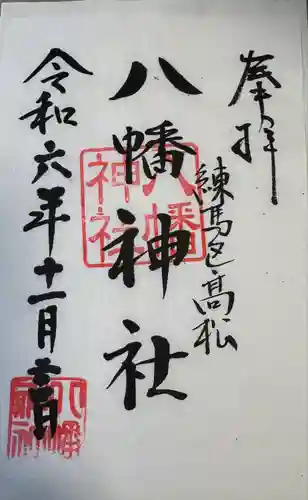 奉拝
練馬区高松
八幡神社
八幡神社
令和六年十一月三日
八幡神社